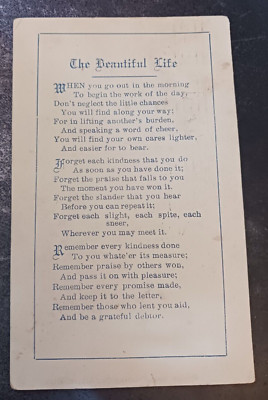 The Beautiful Life
WHEN you go out in the morning
To begin the work of the day,
Don't neglect the little chances
You will find along your way;
For in lifting another's burden,
And speaking a word of cheer,
You will find your own cares lighter,
And easier for to bear.
Forget each kindness that you do
As soon as you have done it;
Forget the praise that falls to you
The moment you have won it.
Forget the slander that you hear
Before you can repeat it;
Forget each slight, each spite, each
sneer,
Wherever you may meet it.
Remember every kindness done
To you whate'er its measure;
Remember praise by others won,
And pass it on with pleasure;
Remember every promise made,
And keep it to the letter,
Remember those who lent you aid,
And be a grateful debtor.